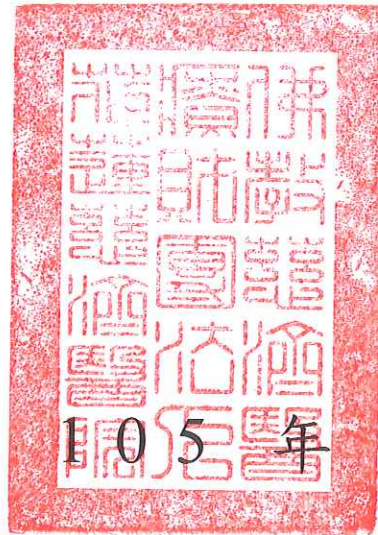 佛教慈濟醫
療財團法人
花蓮慈濟醫院
105 年